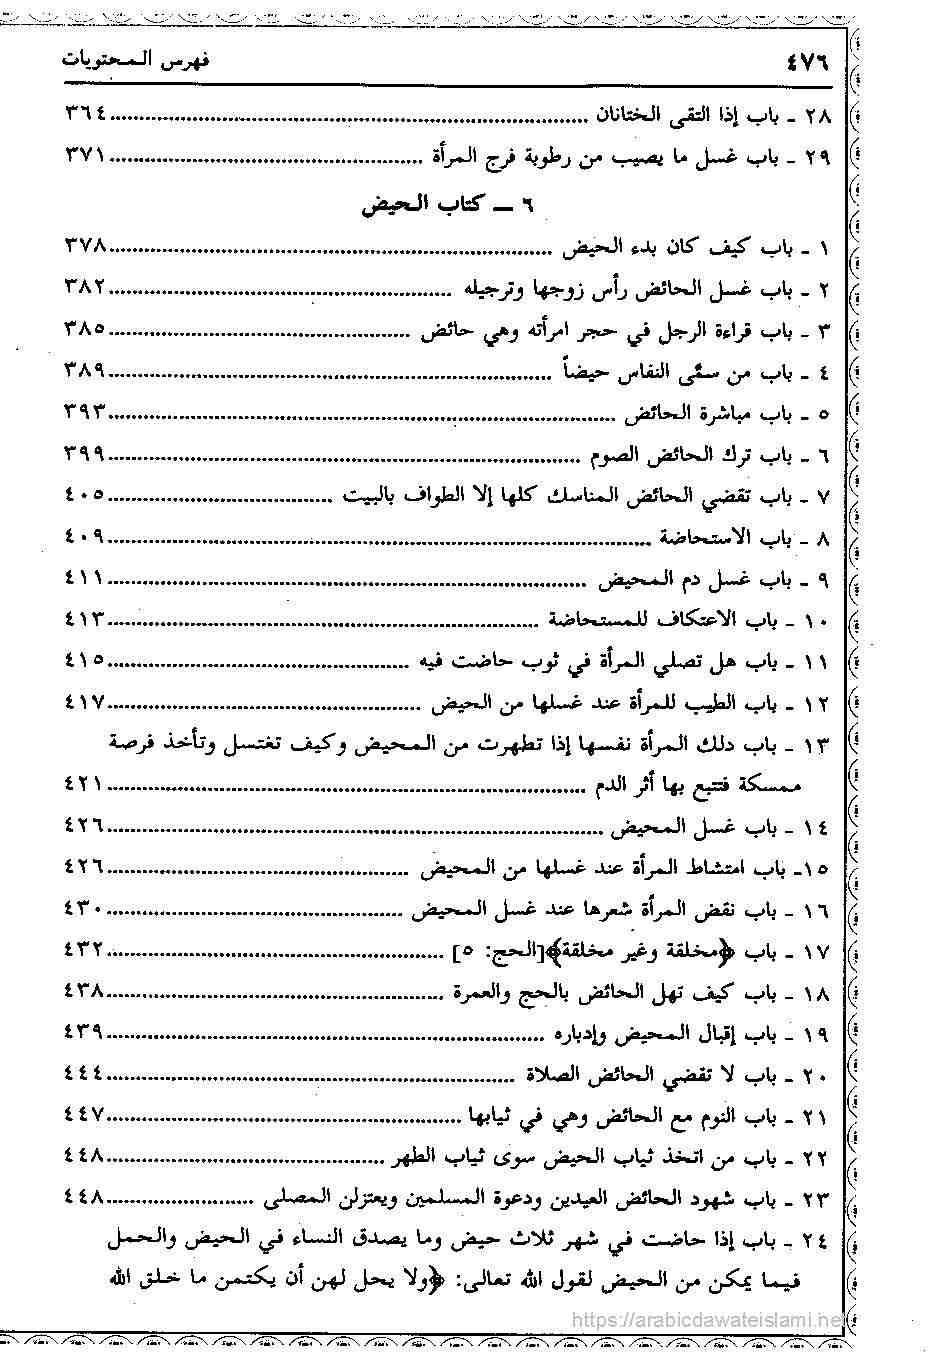 ٤٧٦ فهرس المحتويات
٢٨ ـ باب إذا التقى الختانان ........ ٣٦٤
٢٩ ـ باب غسل ما يصيب من رطوبة فرج المرأة ........ ٣٧١
٦ ــ كتاب الحيض
١ ـ باب كيف كان بدء الحيض ........ ٣٧٨
٢ ـ باب غسل الحائض رأس زوجها وترجيله ........ ٣٨٢
٣ ـ باب قراءة الرجل في حجر امرأته وهي حائض ........ ٣٨٥
٤ ـ باب من سمَّى النفاس حيضاً ........ ٣٨٩
٥ ـ باب مباشرة الحائض ........ ٣٩٣
٦ ـ باب ترك الحائض الصوم ........ ٣٩٩
٧ ـ باب تقضي الحائض المناسك كلها إلا الطواف بالبيت ........ ٤٠٥
٨ ـ باب الاستحاضة ........ ٤٠٩
٩ ـ باب غسل دم المحيض ........ ٤١١
١٠ ـ باب الاعتكاف للمستحاضة ........ ٤١٣
١١ ـ باب هل تصلي المرأة في ثوب حاضت فيه ........ ٤١٥
١٢ ـ باب الطيب للمرأة عند غسلها من الحيض ........ ٤١٧
١٣ ـ باب دلك المرأة نفسها إذا تطهرت من المحيض وكيف تغتسل وتأخذ فرصة
ممسكة فتتبع بها أثر الدم ........ ٤٢١
١٤ ـ باب غسل المحيض ........ ٤٢٦
١٥ـ باب امتشاط المرأة عند غسلها من المحيض ........ ٤٢٦
١٦ ـ باب نقض المرأة شعرها عند غسل المحيض ........ ٤٣٠
١٧ ـ باب ﴿مخلقة وغير مخلقة﴾[الحج: ٥] ........ ٤٣٢
١٨ ـ باب كيف تهل الحائض بالحج والعمرة ........ ٤٣٨
١٩ ـ باب إقبال المحيض وإدباره ........ ٤٣٩
٢٠ ـ باب لا تقضي الحائض الصلاة ........ ٤٤٤
٢١ ـ باب النوم مع الحائض وهي في ثيابها ........ ٤٤٧
٢٢ ـ باب من اتخذ ثياب الحيض سوى ثياب الطهر ........ ٤٤٨
٢٣ ـ باب شهود الحائض العيدين ودعوة المسلمين ويعتزلن المصلى ........ ٤٤٨
٢٤ ـ باب إذا حاضت في شهر ثلاث حيض وما يصدق النساء في الحيض والحمل
فيما يمكن من الحيض لقول الله تعالى: ﴿ولا يحل لهن أن يكتمن ما خلق الله
https://arabicdawateislami.net